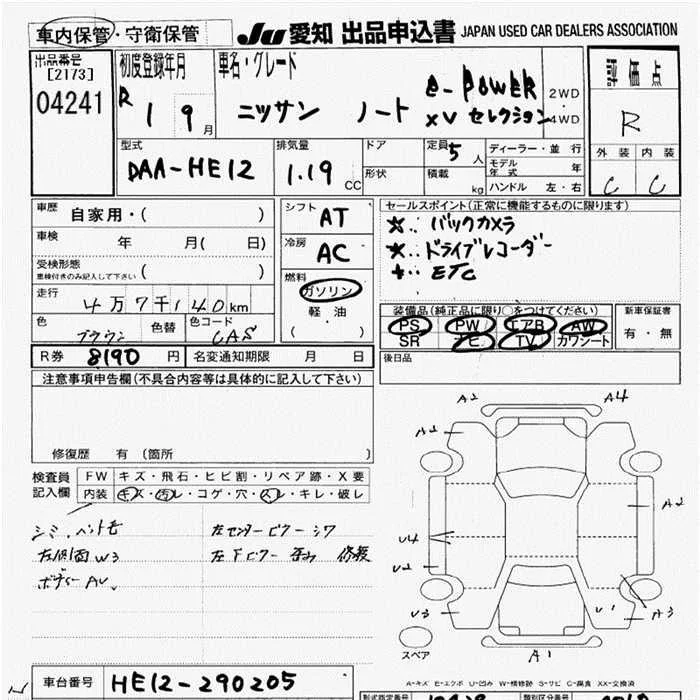 車内保管・守衛保管
JU 愛知 出品申込書 JAPAN USED CAR DEALERS ASSOCIATION
出品番号
[2173]
04241
初度登録年月
R 1 9 月
車名・グレード
ニッサン ノート e-POWER
XV セレクション
2WD
4WD
評価点
R
外装 内装
C C
型式
DAA-HE12
排気量
1.19 CC
ドア
形状
定員 5 人
積載 kg
ディーラー・並行
モデル年式 年
ハンドル 左・右
車歴 自家用・( )
車検 年 月( 日)
受検形態
車検付きのみ記入して下さい ( )
走行 4万7千140km
色 ブラウン 色替 色コード CAS
シフト AT
冷房 AC
燃料
ガソリン
軽油
( )
セールスポイント(正常に機能するものに限ります)
☆.. バックカメラ
☆.. ドライブレコーダー
ETC
装備品(純正品に限り○をつけてください)
PS PW エアB AW
SR ナビ TV カワシート
新車保証書
有・無
後日品
R券 8190 円 名変通知期限 月 日
注意事項申告欄(不具合内容等は具体的に記入して下さい)
修復歴 有 (箇所 )
検査員
記入欄
FW キズ・飛石・ヒビ割・リペア跡・X要
内装 キズ・汚レ・コゲ・穴・スレ・キレ・破レ
左センターピラー シワ
左側面 W3 左下ピラー 修複
ボディー AU
A2 A4
A2
A2
U4
U2
U3 U1 A3
A1
スペア
A-キズ E-エクボ U-凹み W-補修跡 S-サビ C-腐食 XX-交換済
車台番号 HE12-290205
型式指定番号 類別区分番号